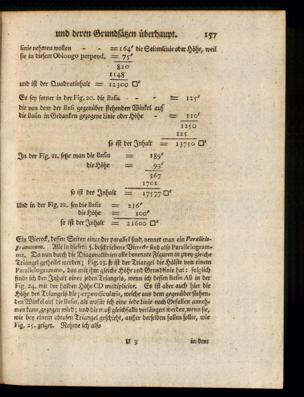 und deren Grundsätzen überhaupt. 157
linie nehmen wollen - - = 164′ die Seitenlinie oder Höhe, weil
sie in diesem Oblongo perpend. = 75′
820
1148
und ist der Quadratinhalt = 12300 □′
Es sey ferner in der Fig. 20. die Basis - - = 125′
die von dem der Basi gegenüber stehenden Winkel auf
die Basin in Gedanken gezogene linie oder Höhe - = 110′
1250
125
so ist der Inhalt = 13750 □′
In der Fig. 21. setze man die Basin = 189′
die Höhe = 93′
567
1701
so ist der Inhalt = 17577 □′
Und in der Fig. 22. sey die Basis = 216′
die Höhe = 100′
so ist der Inhalt = 21600 □′
Ein Viereck, dessen Seiten einander parallel sind, nennet man ein Parallelo-
grammum. Alle in diesem § beschriebene Vierecke sind also Parallelogram-
ma. Da nun durch die Diagonallinien alle benannte Figuren in zwey gleiche
Triangel getheilet werden; Fig. 23. so ist der Triangel die Hälfte von einem
Parallelogrammo, das mit ihm gleiche Höhe und Grundlinie hat: folglich
findet sich der Inhalt eines jeden Triangels, wenn ich dessen Basin AB in der
Fig. 24. mit der halben Höhe CD multiplicire. Es ist aber auch hier die
Höhe des Triangels die perpendicularis, welche aus dem gegenüber stehen-
den Winkel auf die Basin, als wofür ich eine jede linie nach Gefallen anneh-
men kann, gezogen wird; und die muß gleichfalls verlängert werden, wenn sie,
wie bey einem obtusen Triangel geschieht, ausser demselben fallen sollte, wie
Fig. 25. zeiget. Nehme ich also
U 3 in dem